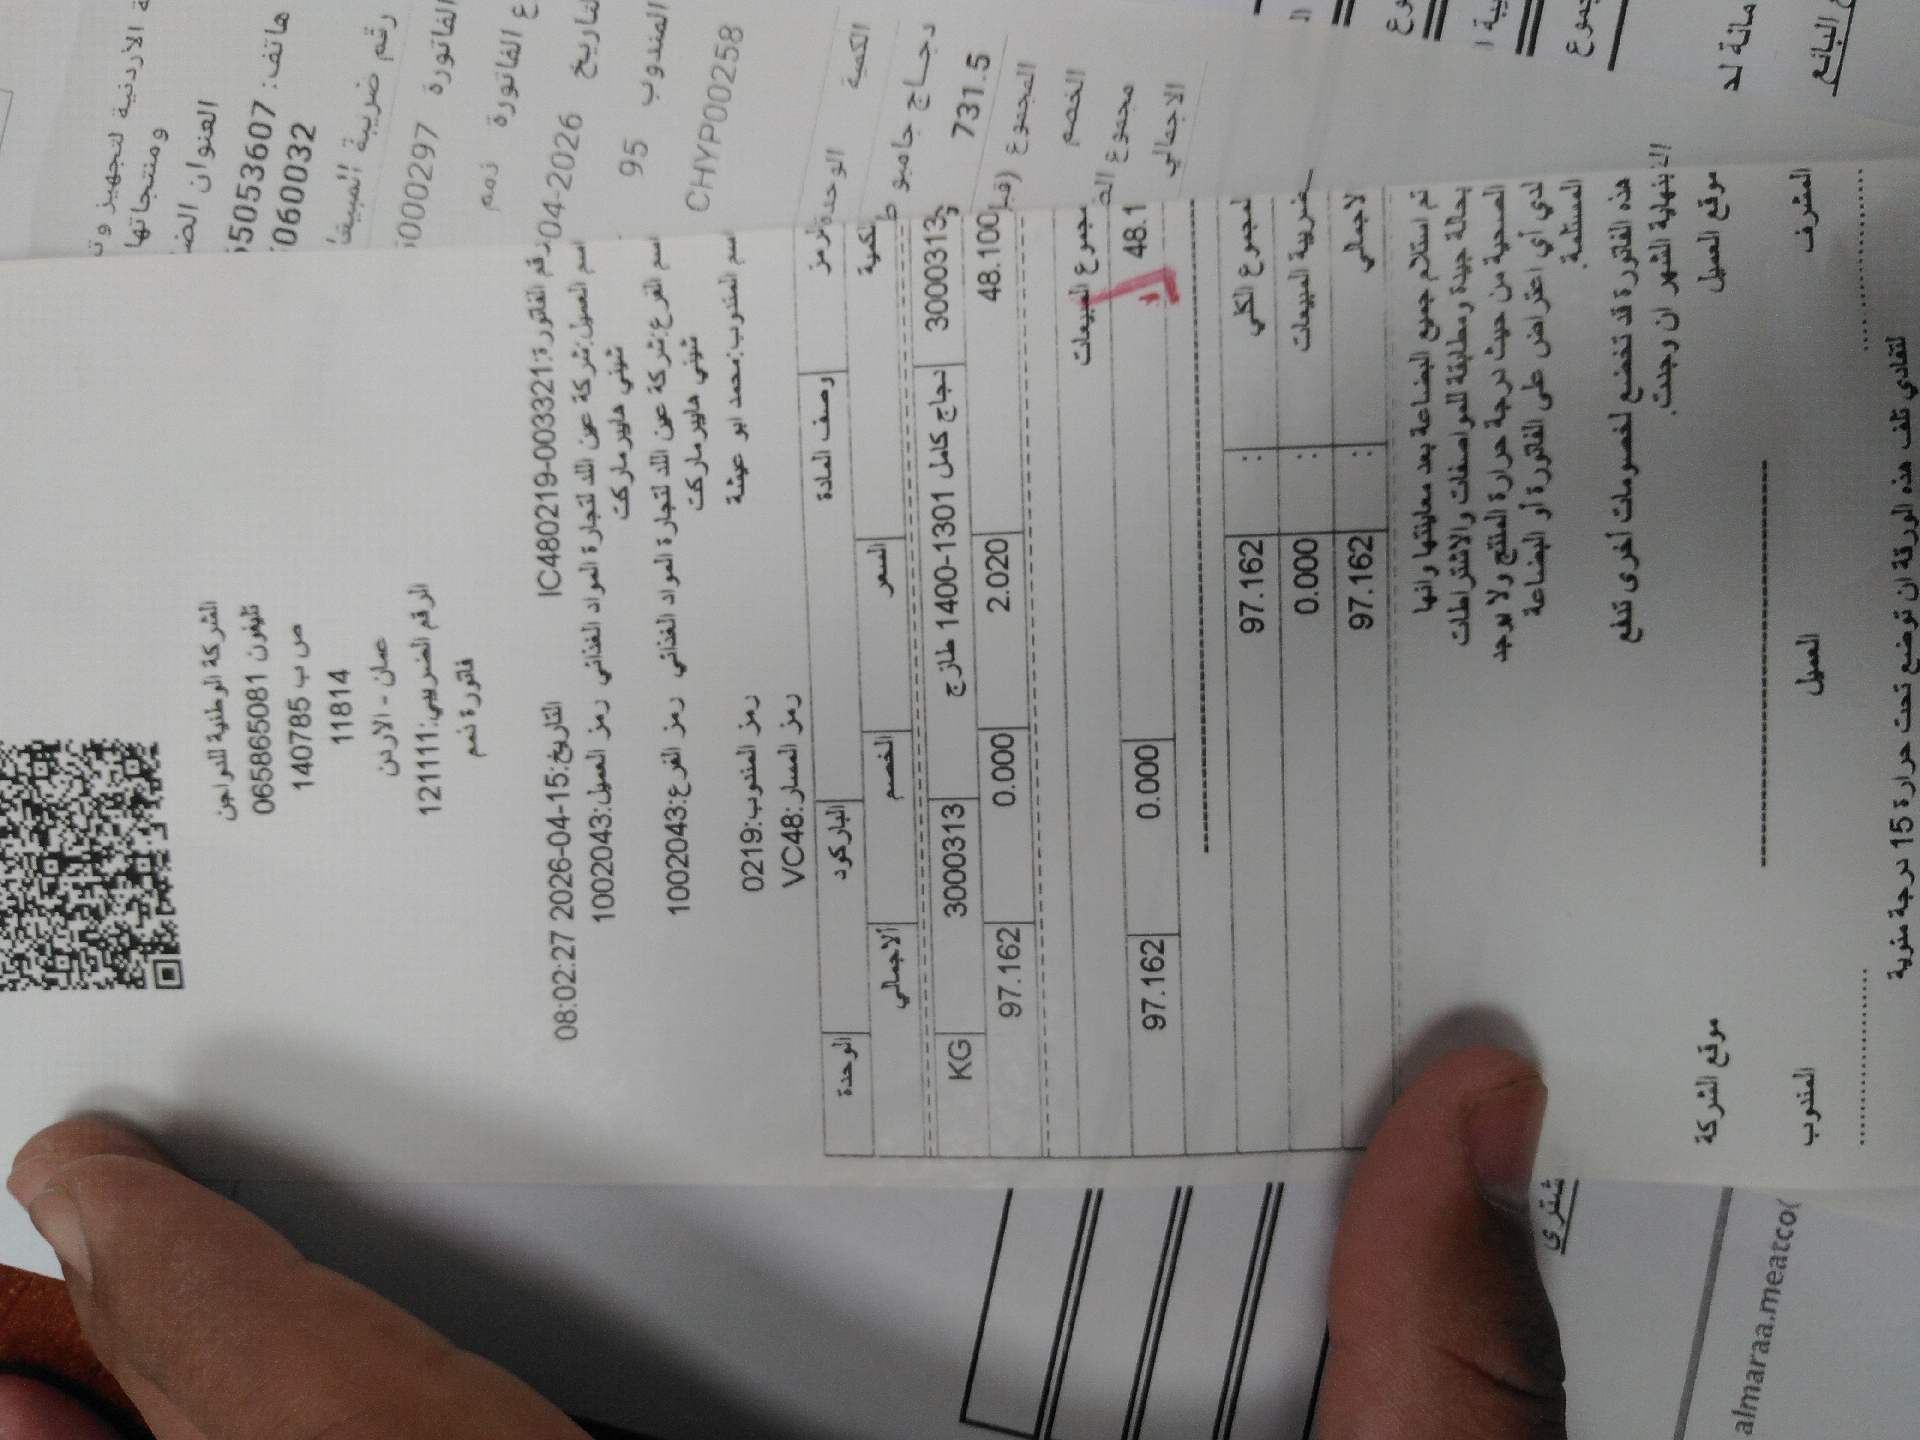 الشركة الوطنية للدواجن
تليفون 065865081
ص ب 140785
11814
عمان - الاردن
الرقم الضريبي:121111
فاتورة ذمم
رقم الفاتورة:IC480219-003321 التاريخ:15-04-2026 08:02:27
اسم العميل:شركة عين اللد لتجارة المواد الغذائي رمز العميل:1002043
شيني هايبر ماركت
اسم الفرع:شركة عين اللد لتجارة المواد الغذائي رمز الفرع:1002043
شيني هايبر ماركت
اسم المندوب:محمد ابو عيشة رمز المندوب:0219
رمز المسار:VC48
الرمز وصف المادة الباركود الوحدة
الكمية السعر الخصم الاجمالي
3000313 دجاج كامل 1301-1400 طازج 3000313 KG
48.100 2.020 0.000 97.162
مجموع المبيعات
48.1 0.000 97.162
المجموع الكلي : 97.162
ضريبة المبيعات : 0.000
الاجمالي : 97.162
تم استلام جميع البضاعة بعد معاينتها وانها
بحالة جيدة ومطابقة للمواصفات والاشتراطات
الصحية من حيث درجة حرارة المنتج ولا يوجد
لدي أي اعتراض على الفاتورة أو البضاعة
المستلمة.
هذه الفاتورة قد تخضع لخصومات أخرى تدفع
بنهاية الشهر ان وجدت.
موقع العميل موقع الشركة
المشرف العميل المندوب
لتفادي تلف هذه الورقة ان توضع تحت حرارة 15 درجة مئوية
ة الاردنية لتجهيز وت
ومنتجاتها
العنوان
هاتف: 5053607
060032
رقم ضريبة المبيعا
الفاتورة 000297
ع الفاتورة ذمم
التاريخ 04-2026
المندوب 95
CHYP00258
الكمية الوحدة
دجاج جامبو
731.5
المجموع
الخصم
مجموع
الاجمالي
البائع
almaraa.meatco